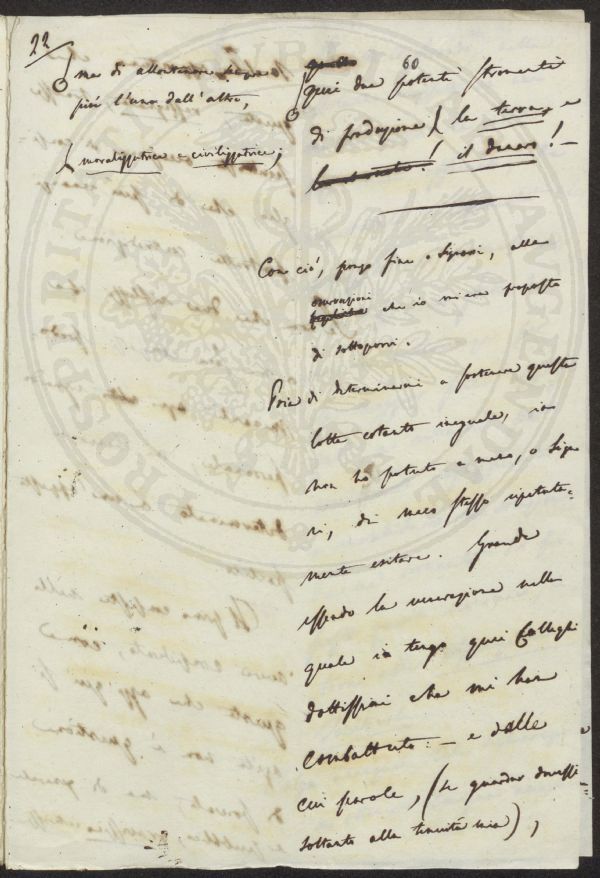 22
ma di allontanare sempre
più l'uno dall'altro,
( moralizzatrice e civilizzatrice;
60
quei due potenti stromenti
di produzione ( la terra, e
il denaro! –
Con ciò, pongo fine o Signori, alle
osservazioni
che io mi era proposto
di sottoporvi.
Pria di determinarmi a sostenere questa
lotta cotanto ineguale, io
non ho potuto a meno, o Signo
ri, di meco stesso ripetuta=
mente esitare. Grande
essendo la venerazione nella
quale io tengo quei Colleghi
dottissimi che mi han
combattuto: – e dalle
cui parole, (se guardar dovessi
soltanto alla tenuità mia),